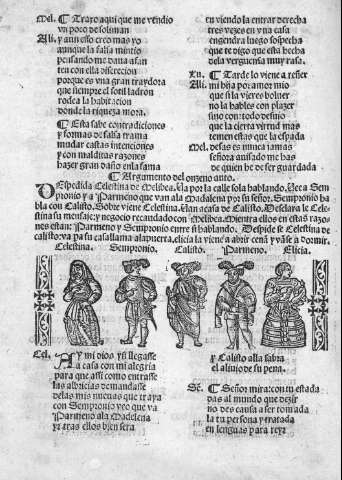 Mel. ¶ Traxo aqui que me vendio
vn poco de soliman
Ali. y aun esso creo mas yo
aunque la falsa mintio
pensando me daua afan
ten con ella discrecion
porque es vna gran traydora
que siempre el sotil ladron
rodea la habitacion
donde la riqueza mora.
¶ Esta sabe contradiciones
y formas de falsa trama
mudar castas intenciones
y con malditas razones
hazer gran daño enla fama
tu viendo la entrar derecha
tres vezes en vna casa
engendra luego sospecha
que te digo que esta hecha
dela verguença muy rasa.
Lu. ¶ Tarde lo viene a reñer
Ali. mi hija por amor mio
que si la vieres boluer
no la hables con plazer
sino con todo desuio
que la cierta virtud mas
temen estas que la espada
Mel. desas es nunca jamas
señora auisado me has
de quien he de ser guardada
¶ Argumento del onzeno auto.
DEspedida Celestina de Melibea. Va por la calle sola hablando. Vee a Sem
pronio y a Parmeno que van ala Madalena por su señor. Sempronio ha
bla con Calisto. Sobre viene Celestina. Van a casa de Calisto. Declara le Cele
stina su mensaje: y negocio recaudado con Melibea. Mientra ellos en estas razo
nes estan: Parmeno y Sempronio entre si hablando. Despide se Celestina de
calisto: va pa su casa llama ala puerta. elicia la viene a abrir cenã y vãse a dormir.
Celestina. Sempronio. Calisto. Parmeno. Elicia.
Cel. AY mi dios si llegasse
a casa con mi alegria
para que assi como entrasse
las albricias demandasse
delas mis nueuas que traya
con Sempronio veo que va
Parmeno ala Madelena
yr tras ellos bien sera
y Calisto alla sabra
el aliuio de su pena.
Sẽ. ¶ Señor mira: con tu estada
das al mundo que dezir
no des causa a ser tomada
la tu persona y tratada
en lenguas para reyr